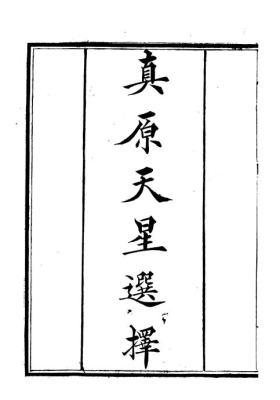 真原天星選擇